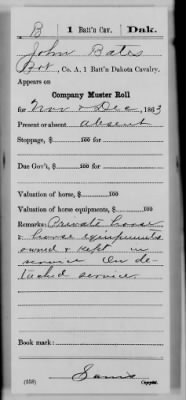 B 1 Batt'n Cav. Dak.
John Bates
Pvt, Co. A, 1 Batt'n Dakota Cavalry.
Appears on
Company Muster Roll
for Nov & Dec, 1863
Present or absent absent
Stoppage, $ 100 for
Due Gov't, $ 100 for
Valuation of horse, $ 100
Valuation of horse equipments, $ 100
Remarks: Private horse
& horse equipments
owned & kept in
service On de-
tached service.
Book mark:
(358) Copyist.